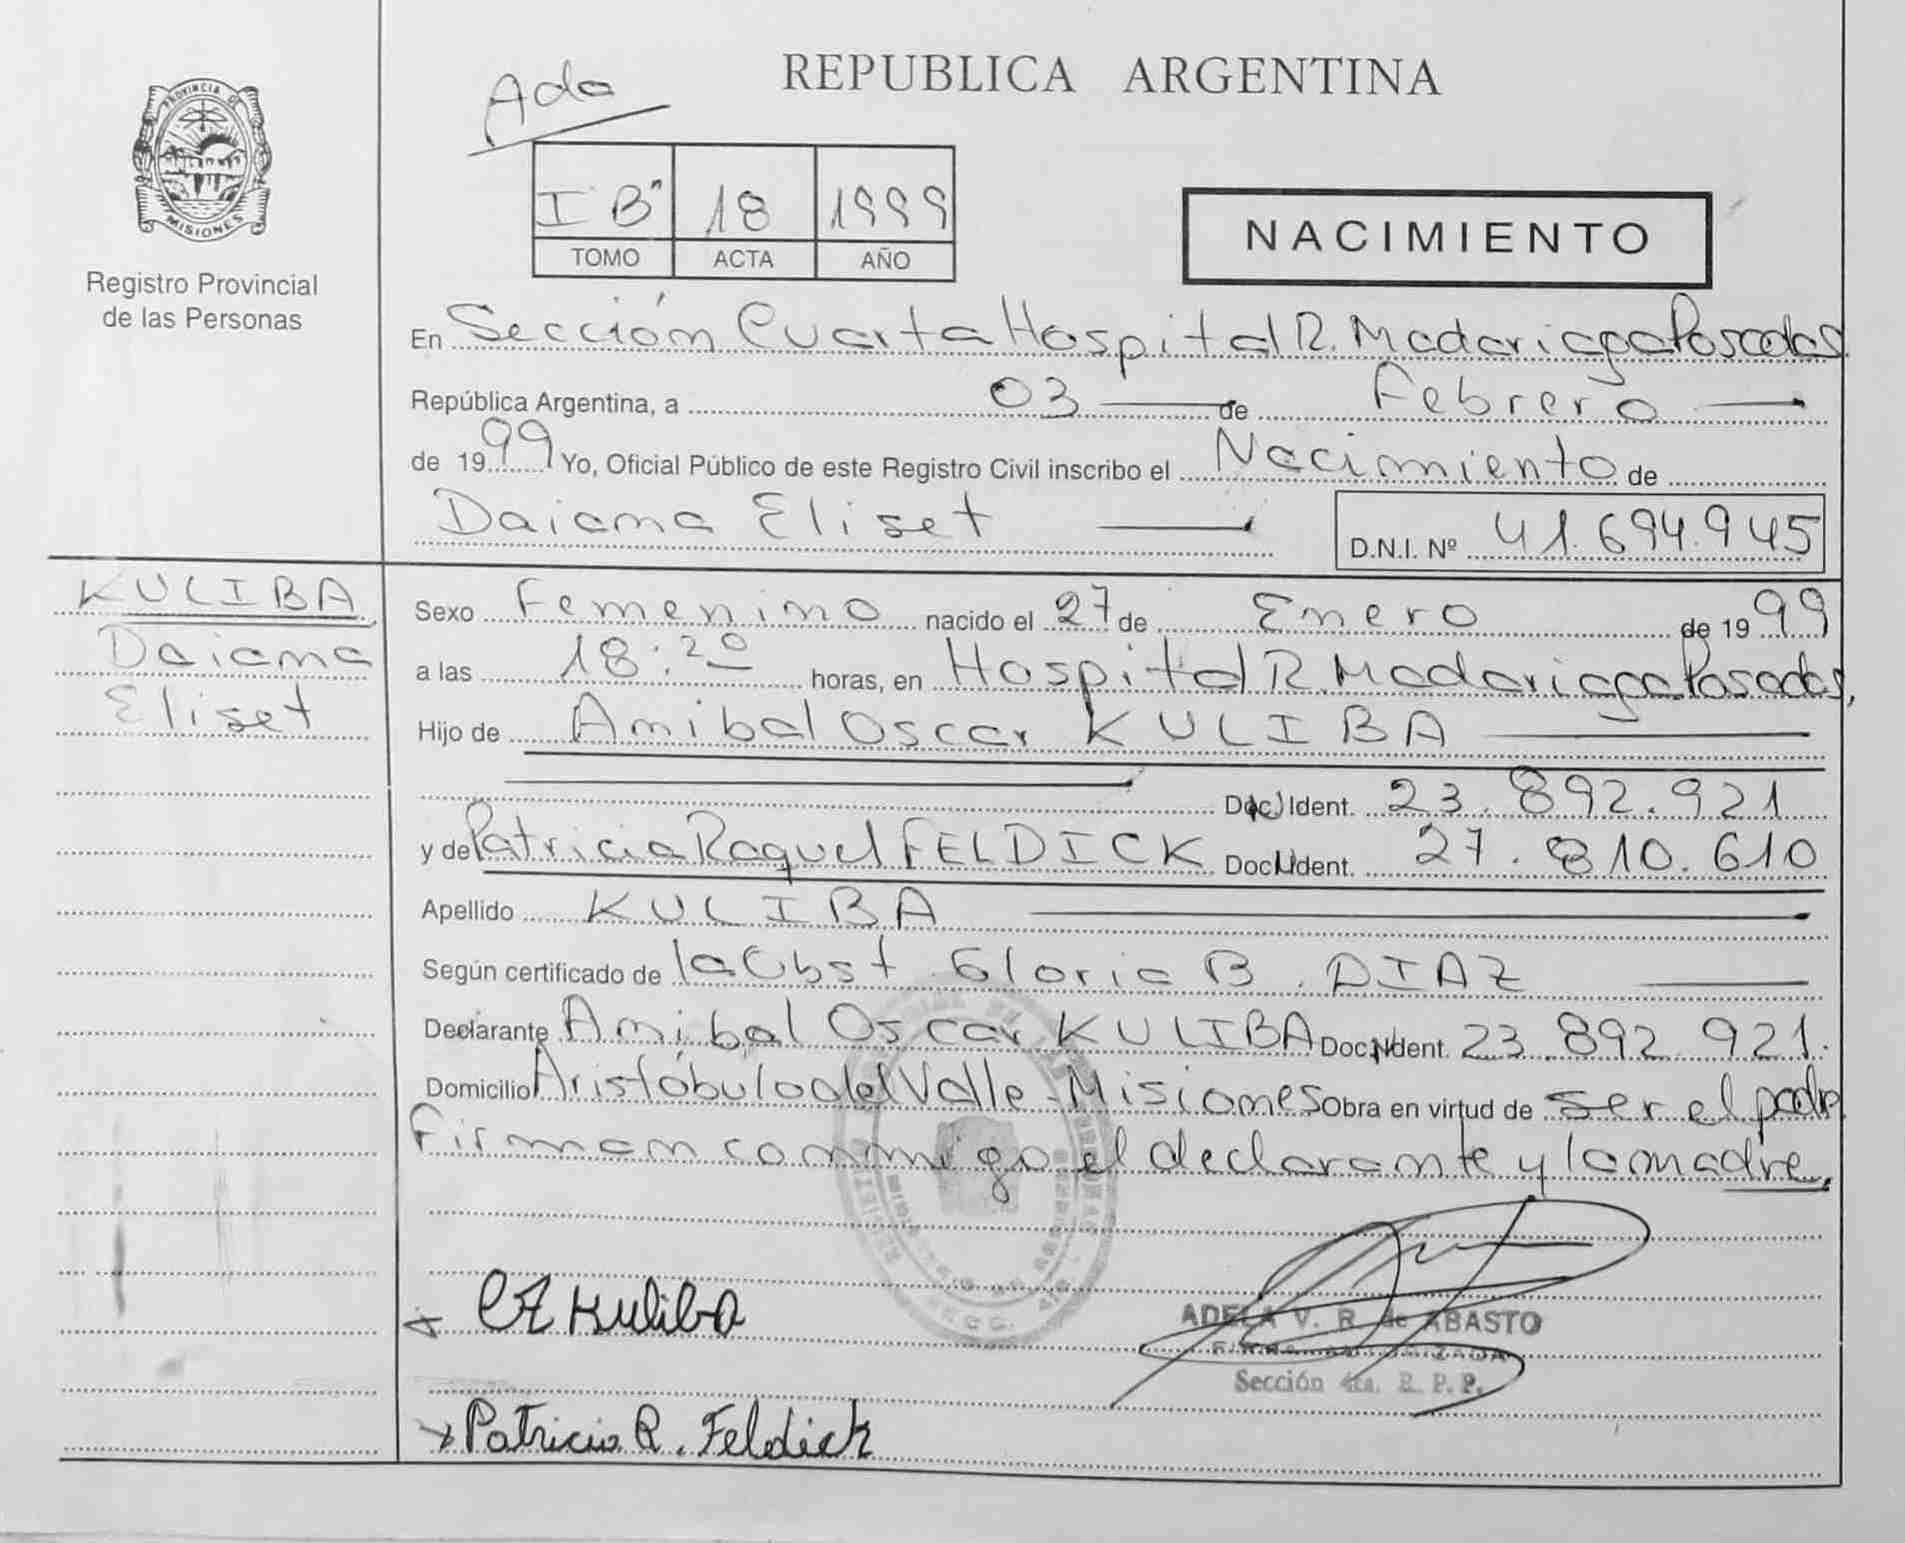 REPUBLICA ARGENTINA
Ada
PROVINCIA DE
MISIONES
Registro Provincial
de las Personas
I "B" 18 1999
TOMO ACTA AÑO
NACIMIENTO
En Sección Cuarta Hospital R. Madariaga Posadas
República Argentina, a 03 de Febrero
de 1999 Yo, Oficial Público de este Registro Civil inscribo el Nacimiento de
Daiana Eliset
D.N.I. Nº 41.694.945
KULIBA
Daiana
Eliset
Sexo Femenino nacido el 27 de Enero de 1999
a las 18:20 horas, en Hospital R. Madariaga Posadas,
Hijo de Anibal Oscar KULIBA
Doc. Ident. 23.892.921
y de Patricia Raquel FELDICK Doc. Ident. 27.810.610
Apellido KULIBA
Según certificado de la Obst Gloria B. DIAZ
Declarante Anibal Oscar KULIBA Doc. Ident. 23.892.921.
Domicilio Aristóbulo del Valle - Misiones Obra en virtud de ser el padre
Firman conmigo el declarante y la madre,
Kuliba
ADELA V. R. de ABASTO
FIRMA AUTORIZADA
Sección 4ta. R. P. P.
Patricia R. Feldick